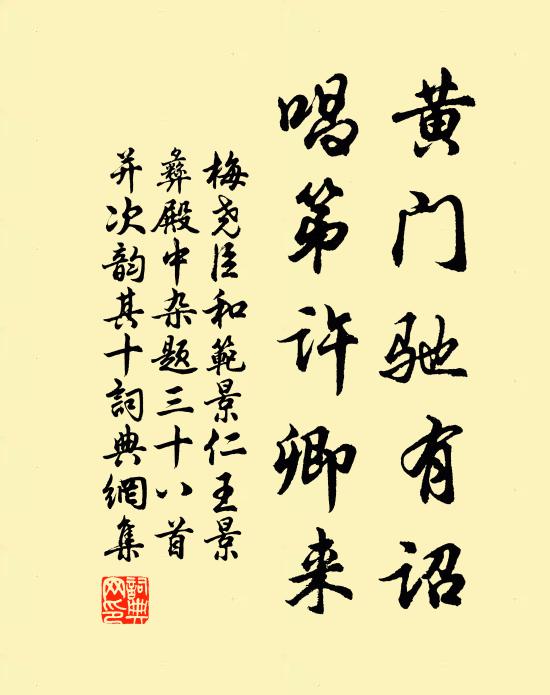 黄门驰有诏
唱第许卿来
梅尧臣和範景仁王景
彝殿中杂题三十八首
并次韵其十詞典網集
詞典